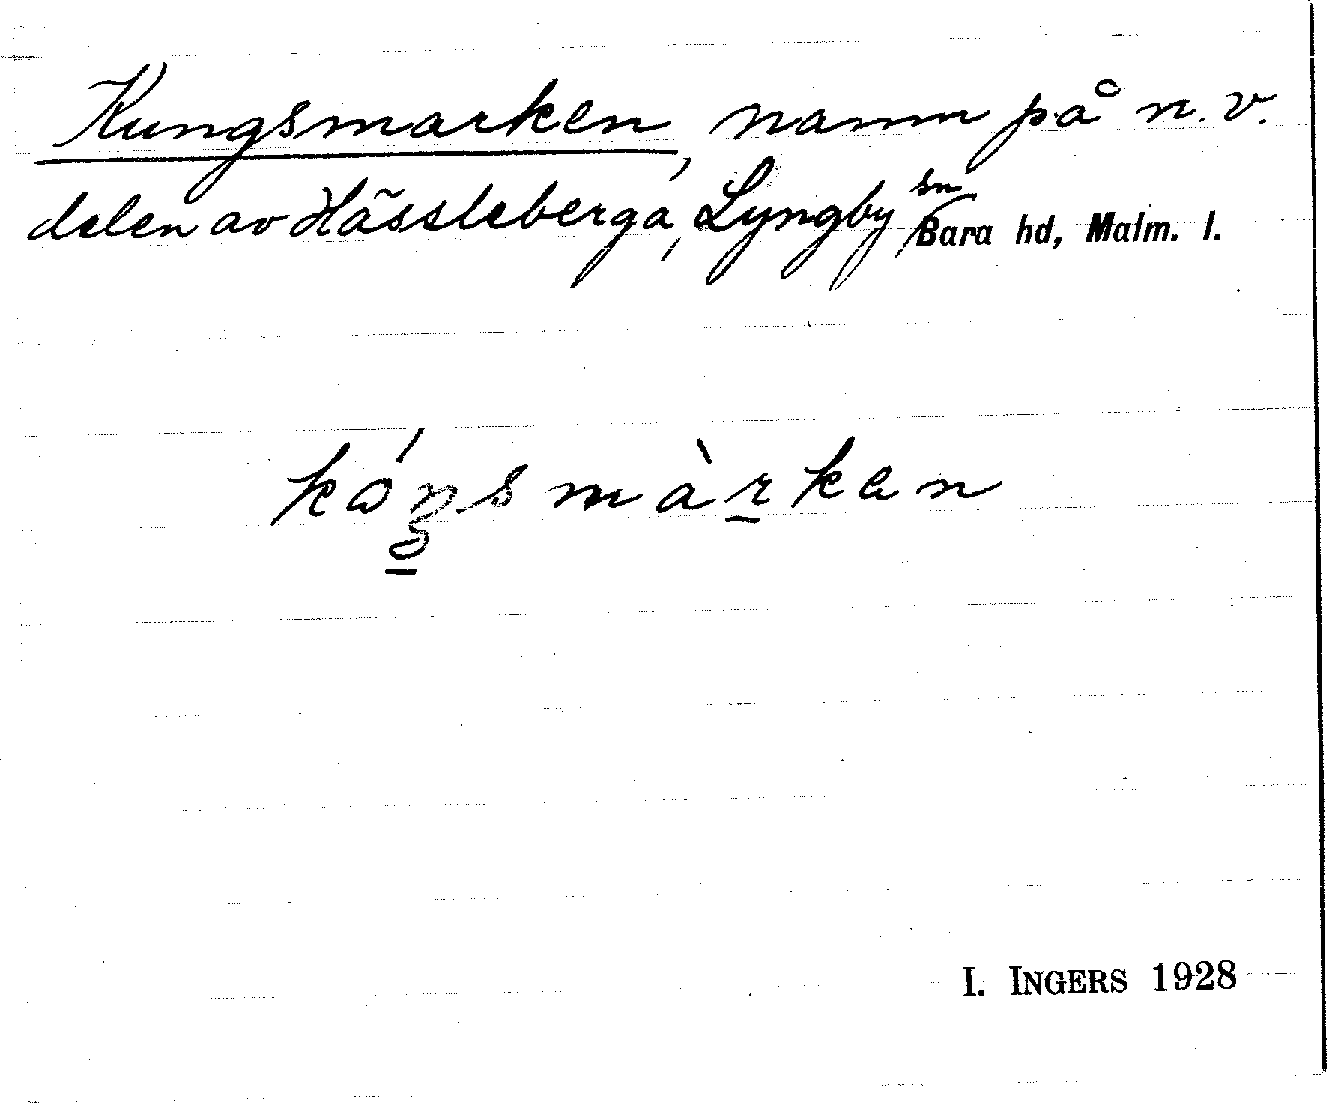 Kungsmarken, namn på n. v.
delen av Hässleberga, Lyngby sn Bara hd, Malm. l.
kóŋsmàrkan
I. INGERS 1928